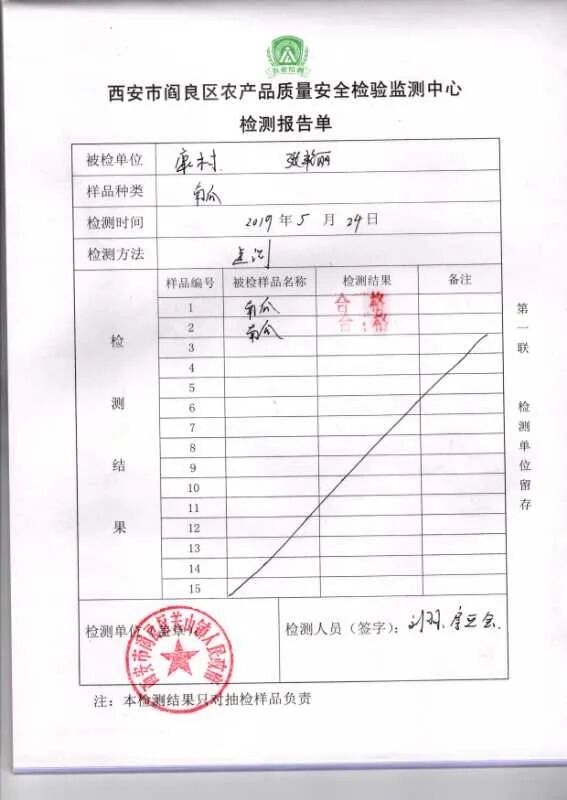 西安市阎良区农产品质量安全检验监测中心
检测报告单
被检单位 康村 张艳丽
样品种类 南瓜
检测时间 2019年5月24日
检测方法 速测
样品编号 被检样品名称 检测结果 备注
检测结果
1 南瓜 合格
2 南瓜 合格
3
4
5
6
7
8
9
10
11
12
13
14
15
第一联 检测单位留存
检测单位(盖章):
西安市阎良区关山镇人民政府
检测人员(签字):
注:本检测结果只对抽检样品负责